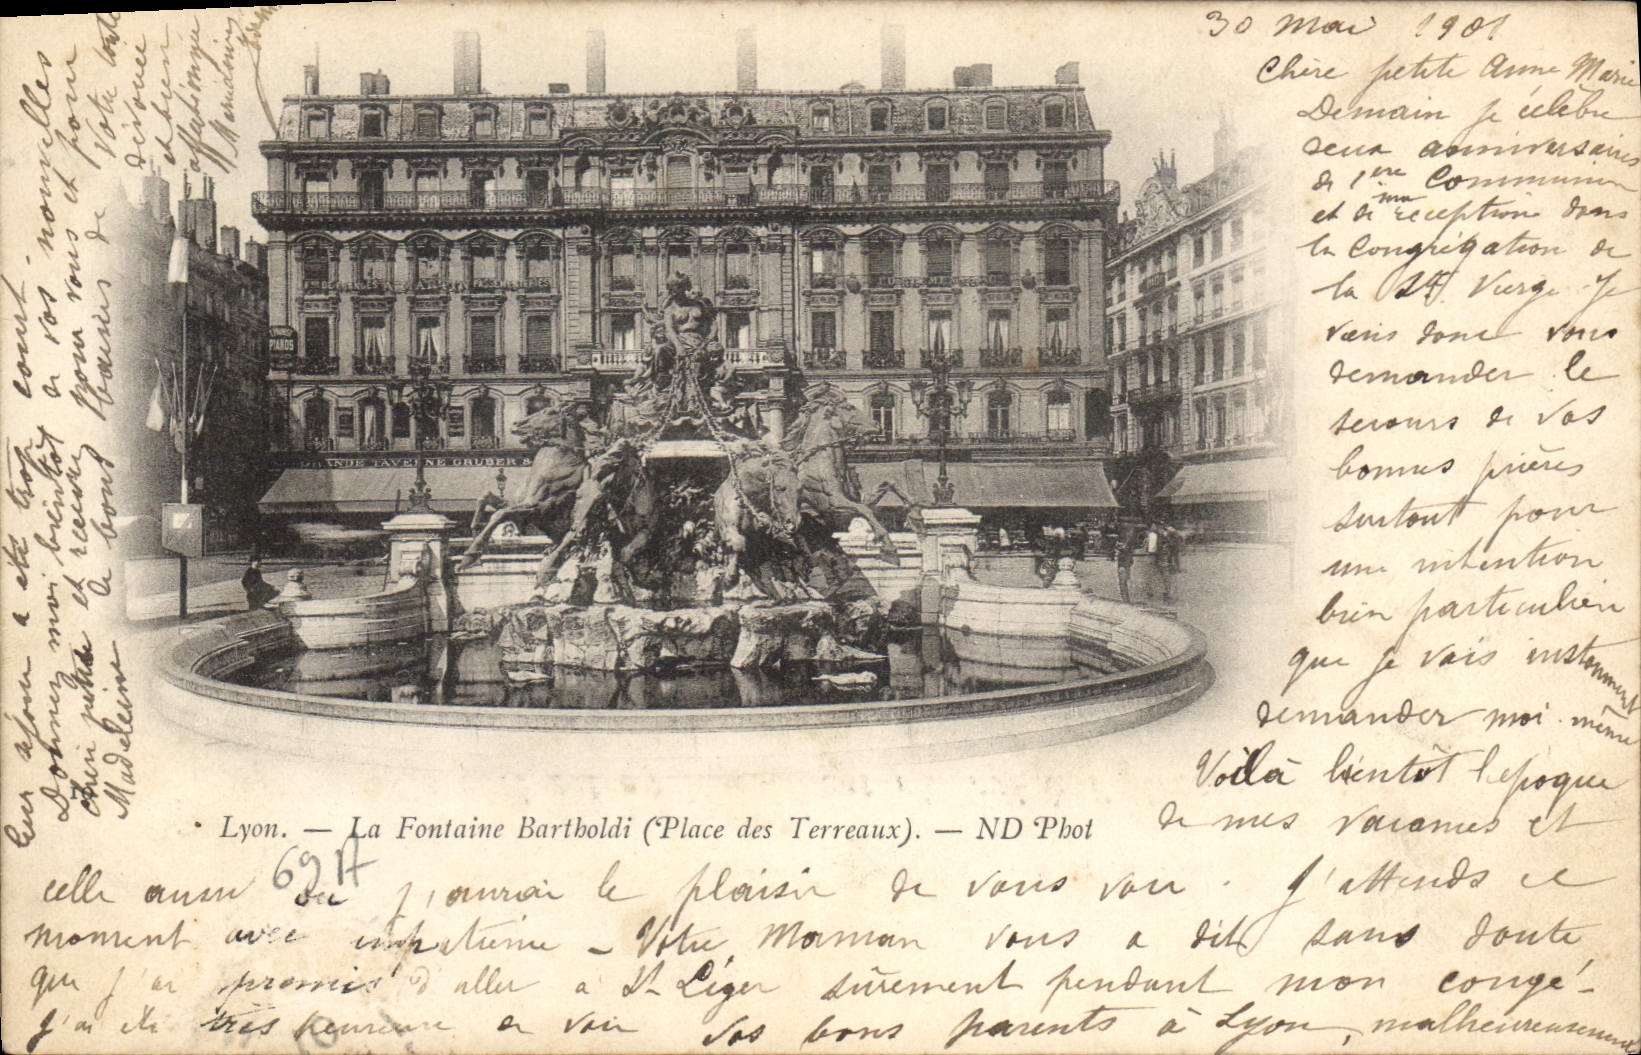 30 Mai 1901
Chère petite Anne Marie
Demain je célèbre
deux anniversaires
de 1ère Communion
et de ma réception dans
la Congrégation de
la Ste Vierge. Je
viens donc vous
demander le
secours de vos
bonnes prières
surtout pour
une intention
bien particulière
que je vais instamment
demander moi-même
Voilà bientôt l'époque
de mes vacances et
celle aussi où j'aurai le plaisir de vous voir. J'attends ce
moment avec impatience - Votre Maman vous a dit sans doute
que j'ai promis d'aller à St Léger sûrement pendant mon congé -
j'ai été très heureuse de voir vos bons parents à Lyon, malheureusement
leur séjour a été trop court.
Donnez moi bientôt de vos nouvelles
chère petite et recevez pour vous et pour
Madeleine de bons baisers de
votre toute
dévouée
et bien
affectionnée
Lyon. — La Fontaine Bartholdi (Place des Terreaux). — ND Phot
69 A
GRANDE TAVERNE GRUBER &
PIANOS